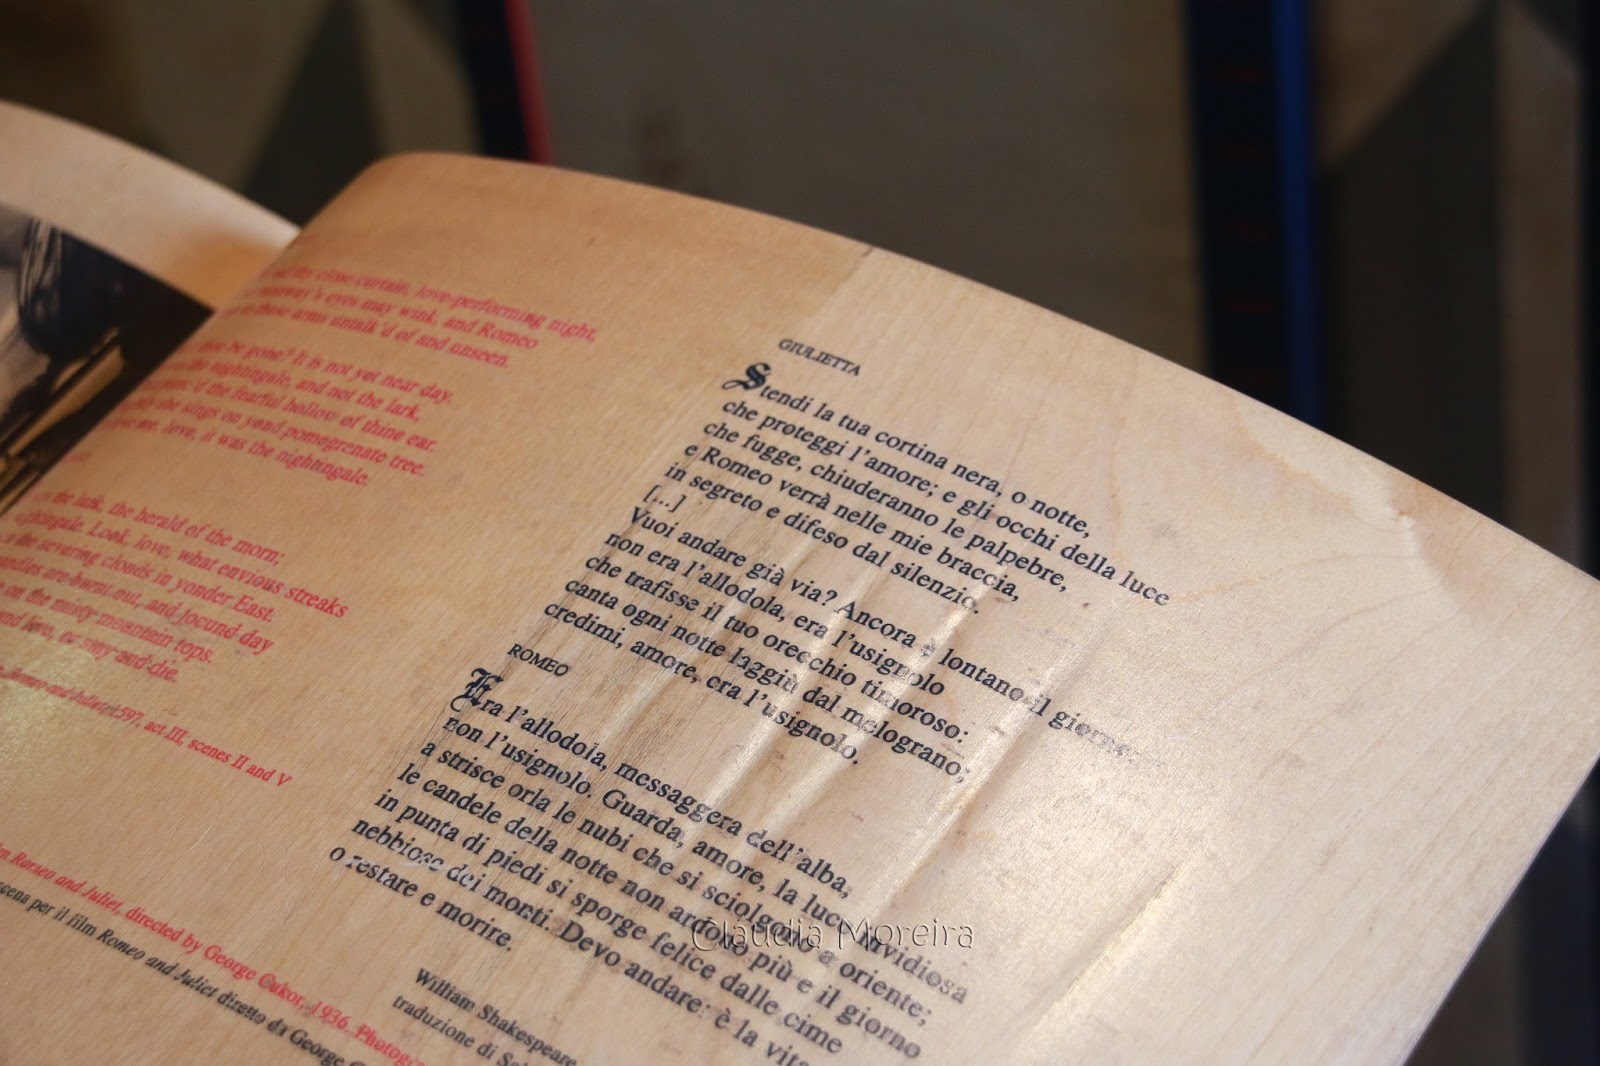 thy close curtain, love-performing night,
eyes may wink, and Romeo
these arms untalk'd of and unseen.
be gone? It is not yet near day.
the nightingale, and not the lark,
the fearful hollow of thine ear.
she sings on yond pomegrenate tree.
me, love, it was the nightingale.
the lark, the herald of the morn;
Look, love, what envious streaks
the severing clouds in yonder East.
are burnt out, and jocund day
on the misty mountain tops.
and live, or stay and die.
Romeo and Juliet, 1597, act III, scenes II and V
Romeo and Juliet, directed by George Cukor, 1936.
scena per il film Romeo and Juliet diretto da George
GIULIETTA
Stendi la tua cortina nera, o notte,
che proteggi l'amore; e gli occhi della luce
che fugge, chiuderanno le palpebre,
e Romeo verrà nelle mie braccia,
in segreto e difeso dal silenzio.
[...]
Vuoi andare già via? Ancora è lontano il giorno:
non era l'allodola, era l'usignolo
che trafisse il tuo orecchio timoroso:
canta ogni notte laggiù dal melograno;
credimi, amore, era l'usignolo.
ROMEO
Era l'allodola, messaggera dell'alba,
non l'usignolo. Guarda, amore, la luce invidiosa
a strisce orla le nubi che si sciolgono a oriente;
le candele della notte non ardono più e il giorno
in punta di piedi si sporge felice dalle cime
nebbiose dei monti. Devo andare: è la vita
o restare e morire.
William Shakespeare
traduzione di
Claudia Moreira